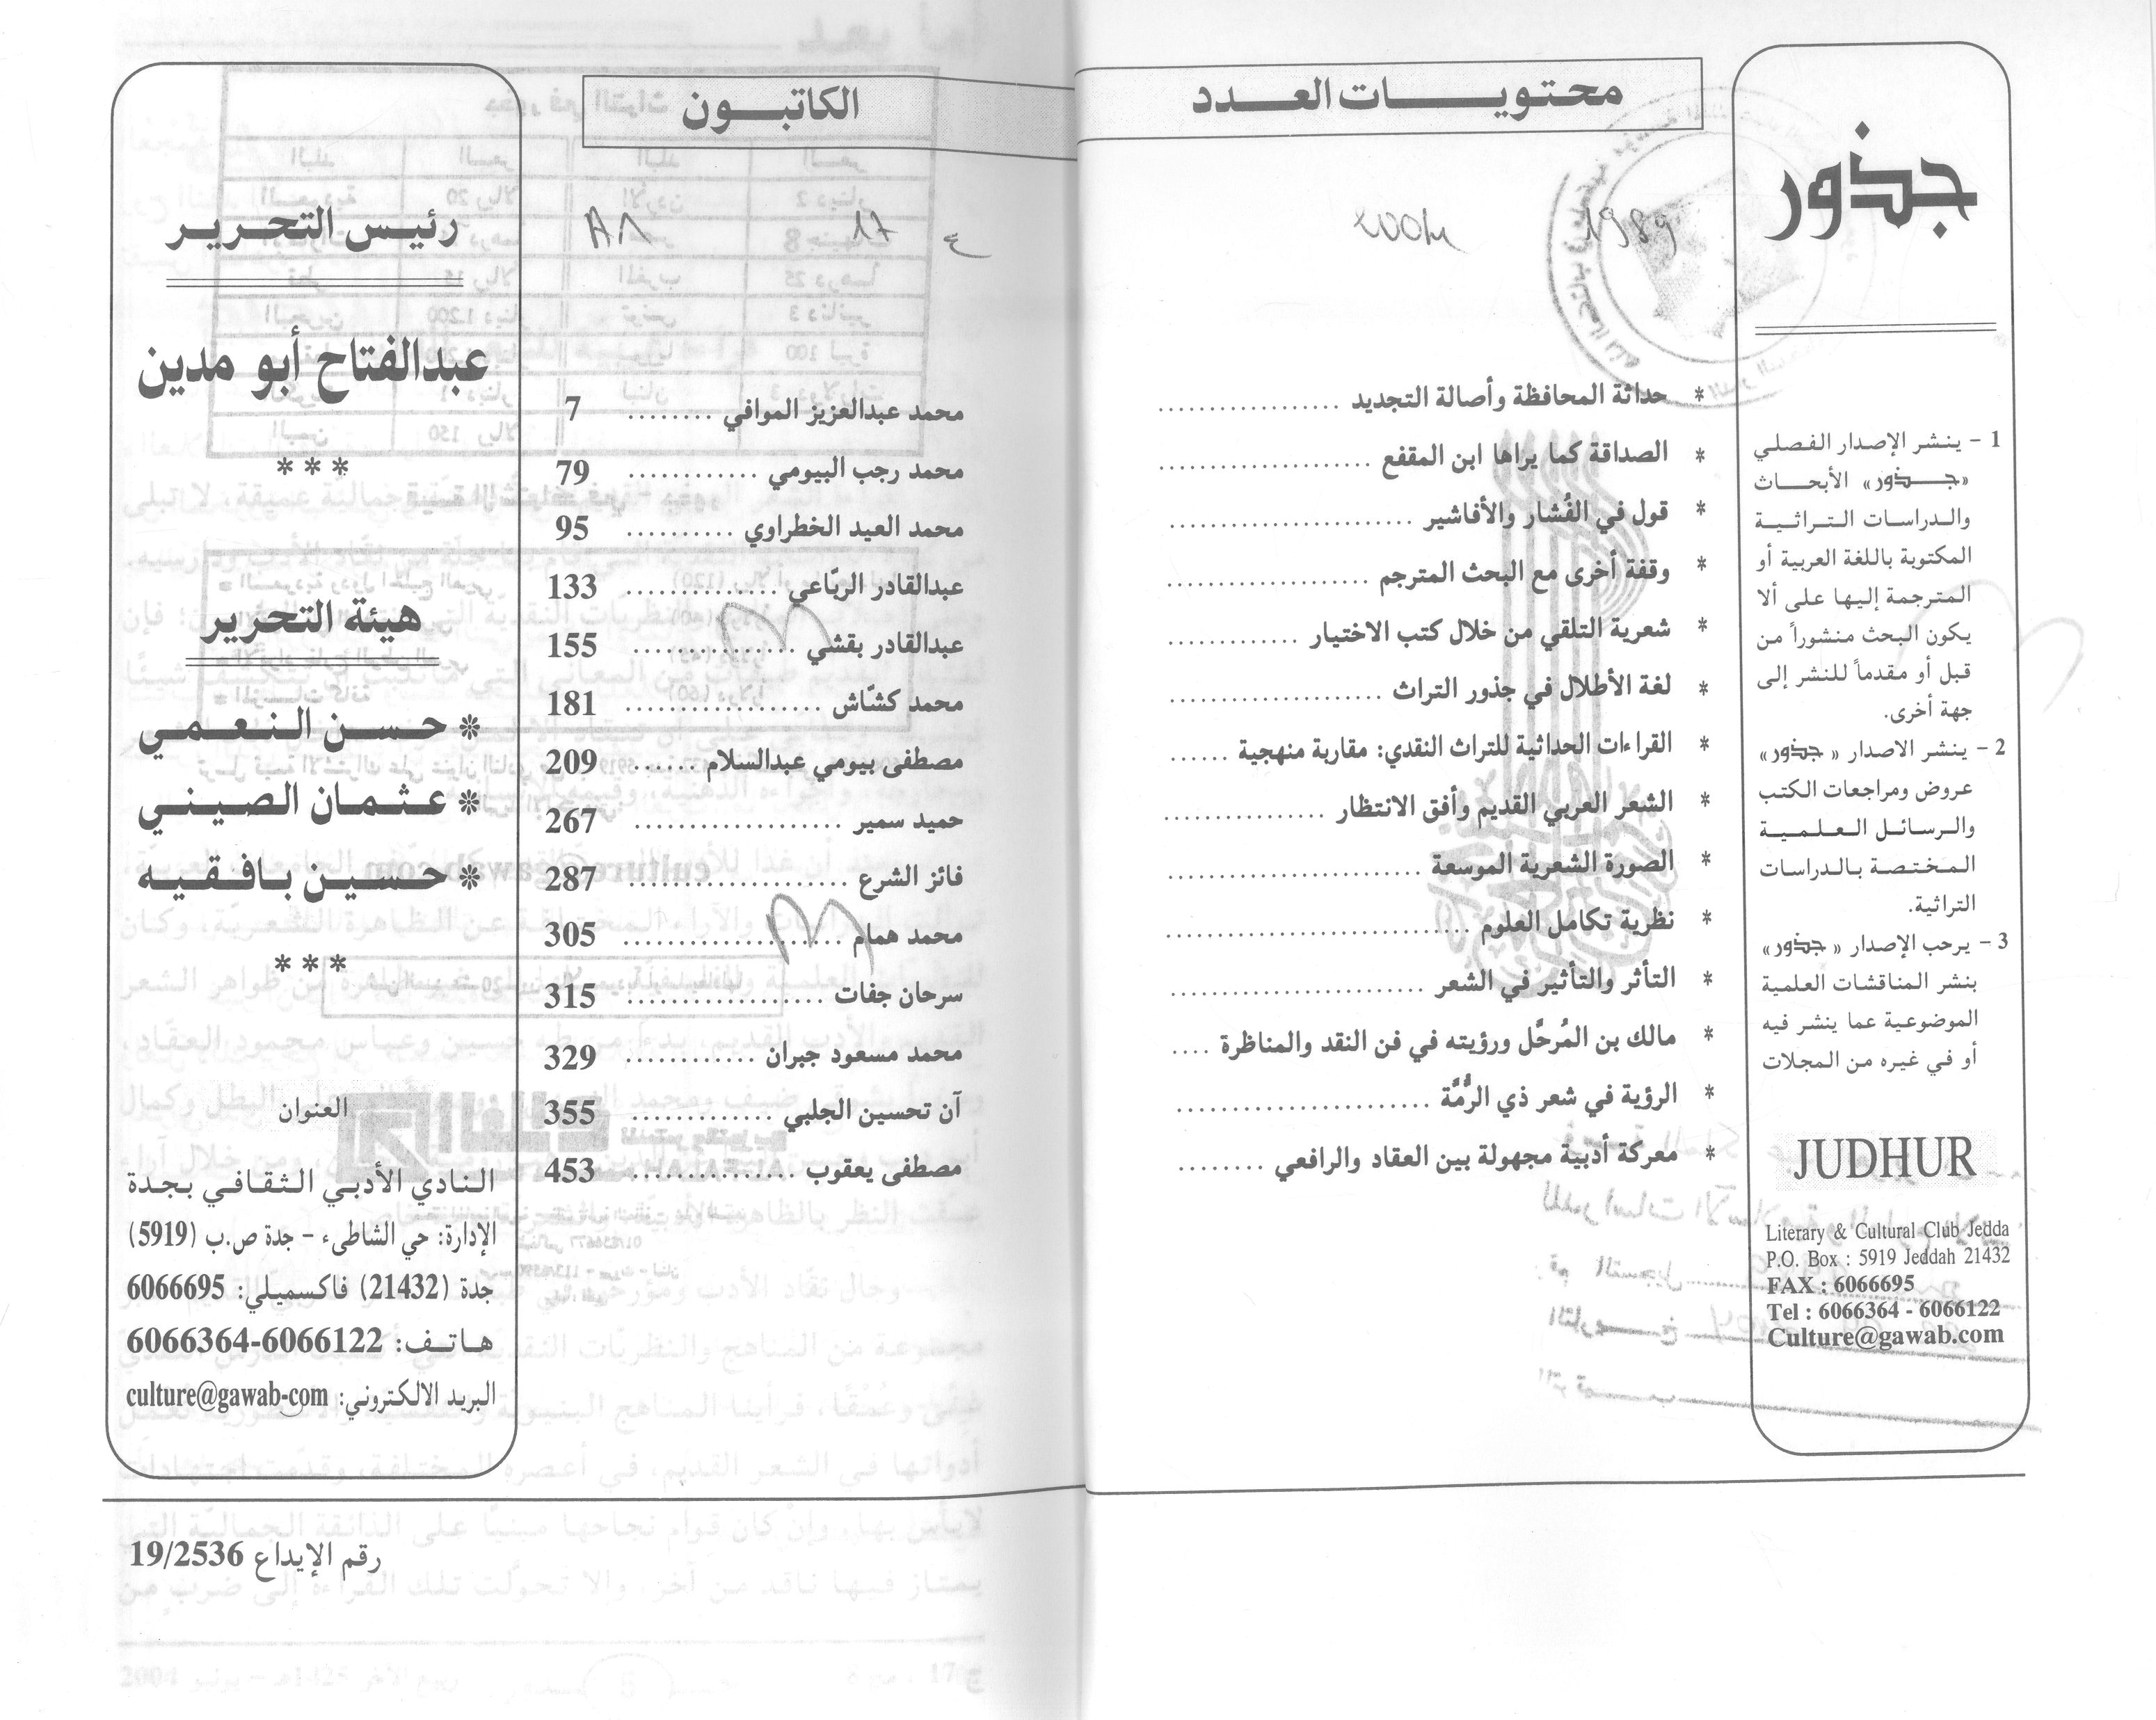 جذور
1 - ينشر الإصدار الفصلي
«جذور» الأبحاث
والدراسات التراثية
المكتوبة باللغة العربية أو
المترجمة إليها على ألا
يكون البحث منشوراً من
قبل أو مقدماً للنشر إلى
جهة أخرى.
2 - ينشر الاصدار «جذور»
عروض ومراجعات الكتب
والرسائل العلمية
المختصة بالدراسات
التراثية.
3 - يرحب الإصدار «جذور»
بنشر المناقشات العلمية
الموضوعية عما ينشر فيه
أو في غيره من المجلات
JUDHUR
Literary & Cultural Club Jedda
P.O. Box : 5919 Jeddah 21432
FAX : 6066695
Tel : 6066364 - 6066122
Culture@gawab.com
محتويات العدد
الكاتبون
1989
* حداثة المحافظة وأصالة التجديد .................. محمد عبدالعزيز الموافي ........ 7
* الصداقة كما يراها ابن المقفع ..................... محمد رجب البيومي ............ 79
* قول في الفُشار والأفاشير ........................ محمد العيد الخطراوي .......... 95
* وقفة أخرى مع البحث المترجم .................... عبدالقادر الربّاعي .............. 133
* شعرية التلقي من خلال كتب الاختيار ............. عبدالقادر بقشي ............... 155
* لغة الأطلال في جذور التراث ..................... محمد كشّاش .................. 181
* القراءات الحداثية للتراث النقدي: مقاربة منهجية ...... مصطفى بيومي عبدالسلام ...... 209
* الشعر العربي القديم وأفق الانتظار ................ حميد سمير .................... 267
* الصورة الشعرية الموسعة ......................... فائز الشرع ..................... 287
* نظرية تكامل العلوم .............................. محمد همام .................... 305
* التأثر والتأثير في الشعر ......................... سرحان جفات .................. 315
* مالك بن المُرحَّل ورؤيته في فن النقد والمناظرة .... محمد مسعود جبران ............ 329
* الرؤية في شعر ذي الرُّمَّة ......................... آن تحسين الجلبي ............. 355
* معركة أدبية مجهولة بين العقاد والرافعي ........ مصطفى يعقوب ............... 453
رئيس التحرير
عبدالفتاح أبو مدين
***
هيئة التحرير
* حسن النعمي
* عثمان الصيني
* حسين بافقيه
***
العنوان
النادي الأدبي الثقافي بجدة
الإدارة: حي الشاطىء - جدة ص.ب (5919)
جدة (21432) فاكسميلي: 6066695
هاتف: 6066122-6066364
البريد الالكتروني: culture@gawab-com
رقم الإيداع 19/2536